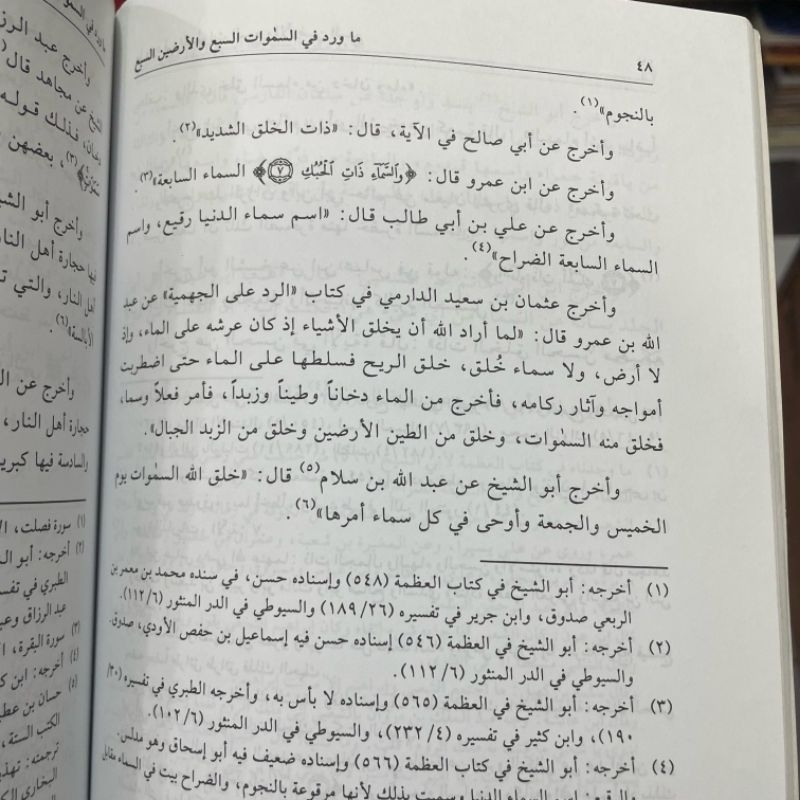 ٤٨
ما ورد في السمٰوات السبع والأرضين السبع
بالنجوم»(١).
وأخرج عن أبي صالح في الآية، قال: «ذات الخلق الشديد»(٢).
وأخرج عن ابن عمرو قال: ﴿وَالسَّمَآءِ ذَاتِ الْحُبُكِ ۝٧﴾ السماء السابعة»(٣).
وأخرج عن علي بن أبي طالب قال: «اسم سماء الدنيا رقيع، واسم
السماء السابعة الضراح»(٤).
وأخرج عثمان بن سعيد الدارمي في كتاب «الرد على الجهمية» عن عبد
الله بن عمرو قال: «لما أراد الله أن يخلق الأشياء إذ كان عرشه على الماء، وإذ
لا أرض، ولا سماء خُلق، خلق الريح فسلطها على الماء حتى اضطربت
أمواجه وآثار ركامه، فأخرج من الماء دخاناً وطيناً وزبداً، فأمر فعلاً وسما،
فخلق منه السمٰوات، وخلق من الطين الأرضين وخلق من الزبد الجبال».
وأخرج أبو الشيخ عن عبد الله بن سلام(٥) قال: «خلق الله السمٰوات يوم
الخميس والجمعة وأوحى في كل سماء أمرها»(٦).
(١) أخرجه: أبو الشيخ في كتاب العظمة (٥٤٨) وإسناده حسن، في سنده محمد بن معمر بن
الربعي صدوق، وابن جرير في تفسيره (٢٦/ ١٨٩) والسيوطي في الدر المنثور (٦/ ١١٢).
(٢) أخرجه: أبو الشيخ في العظمة (٥٤٦) إسناده حسن فيه إسماعيل بن حفص الأودي، صدوق.
والسيوطي في الدر المنثور (٦/ ١١٢).
(٣) أخرجه: أبو الشيخ في العظمة (٥٦٥) وإسناده لا بأس به، وأخرجه الطبري في تفسيره (٣٠/
١٩٠)، وابن كثير في تفسيره (٤/ ٢٣٢)، والسيوطي في الدر المنثور (٦/ ١٠٢).
(٤) أخرجه: أبو الشيخ في كتاب العظمة (٥٦٦) وإسناده ضعيف فيه أبو إسحاق وهو مدلس.
اسم السماء الدنيا وسميت بذلك لأنها مرقوعة بالنجوم، والضراح بيت في السماء مقابل
وأخرج عبد الرز
الشيخ عن مجاهد قال(
فذلك قوله
بعضهن
وأخرج أبو الشي
فيها حجارة أهل النار
أهل النار، والتي
الأبالسة»(٦).
وأخرج عن
حجارة أهل النار،
والسادسة فيها كبري
(١) سورة فصلت،
(٢) أخرجه: أبو الش
الطبري في تفس
عبد الرزاق وعب
(٣) سورة البقرة،
(٤) أخرجه: ابن ك
(٥) حسان بن عطي
الكتب الستة،
ترجمته: تهذي
البخاري الك